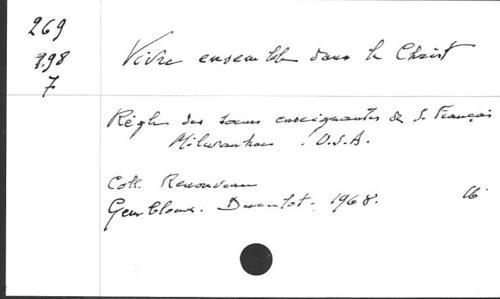 269
7.98
7
Vivre ensemble dans le Christ
Règle des soeurs enseignantes de S. François
Milwaukee U.S.A.
Coll. Renouveau
Gembloux. Duculot. 1968.
16